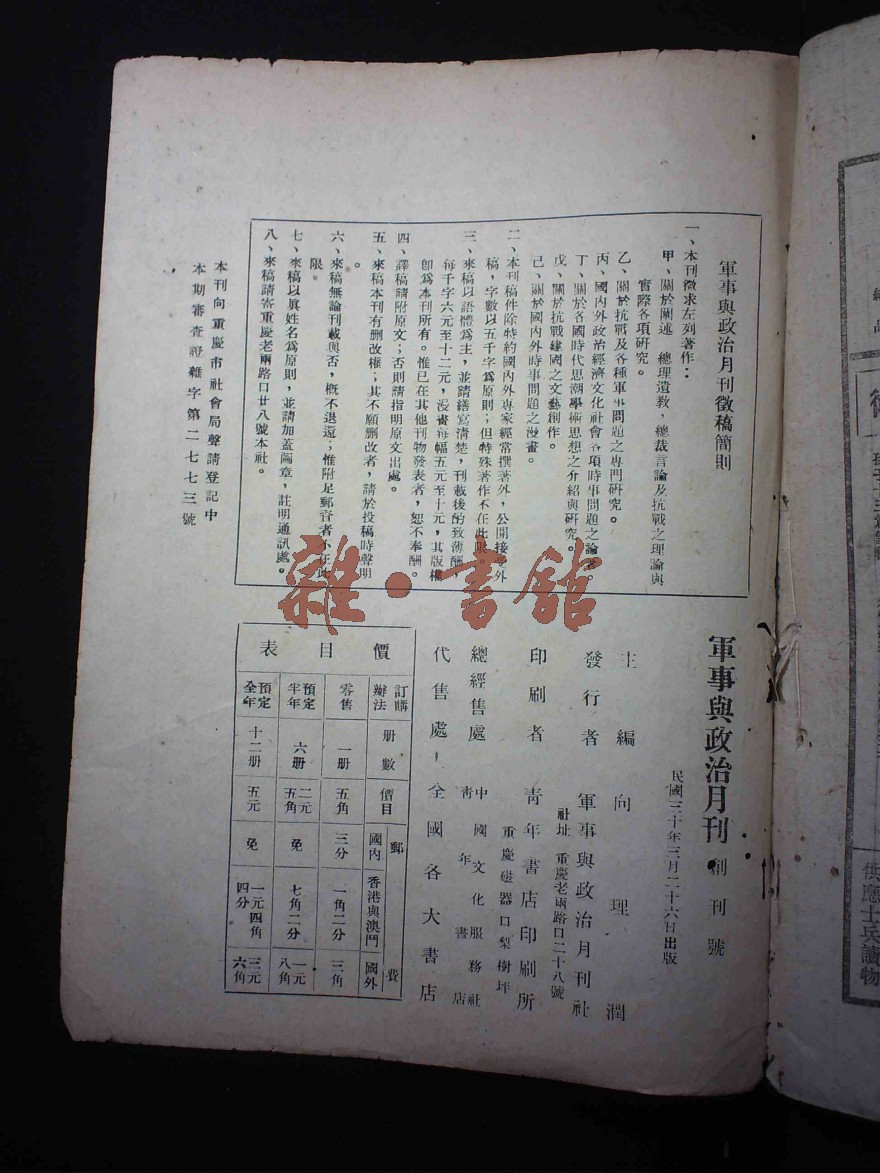 軍事與政治月刊徵稿簡則
一、本刊徵求左列著作：
甲、關於闡述　總理遺教，總裁言論及抗戰之理論與
實際各項研究。
乙、關於抗戰及各種軍事問題之專門研究。
丙、國內外政治經濟文化社會各項時事問題之論著。
丁、關於各國時代思潮學術思想之介紹與研究。
戊、關於抗戰建國之文藝創作。
己、關於國內外時事問題之漫畫。
二、本刊稿件除特約國內外專家經常撰著外，公開接受外
稿，字數以五千字爲原則；但特殊著作不在此限。
三、來稿以語體爲主，並請繕寫清楚，刊載後酌致薄酬，
每千字六元至十二元，漫畫每幅五元至十元，其版權
卽爲本刊所有。惟已在其他刊物發表者，恕不奉酬。
四、譯稿請附原文；否則請指明原文出處。
五、來稿本刊有刪改權；其不願刪改者，請於投稿時聲明
。
六、來稿無論刊載與否，概不退還；惟附足郵資者不在此
限。
七、來稿以眞姓名爲原則，並請加蓋圖章，註明通訊處。
八、來稿請寄重慶老兩路口廿八號本社。
本刊向重慶市社會局聲請登記中
本期審查證雜字第二七七三號
軍事與政治月刊 創刊號
民國三十年三月二十六日出版
主編 向理潤
發行者 軍事與政治月刊社
社址 重慶老兩路口二十八號
印刷者 青年書店印刷所
重慶磁器口梨樹坪
總經售處 中國文化服務社
青年書店
代售處 全國各大書店
價目表
訂購辦法 册數 價目 郵費 國內 香港與澳門 國外
零售 一册 五角 三分 一角二分 三角
預定半年 六册 二元五角 免 七角二分 一元八角
預定全年 十二册 五元 免 一元四角四分 三元六角
雜·書館
供應士兵讀物